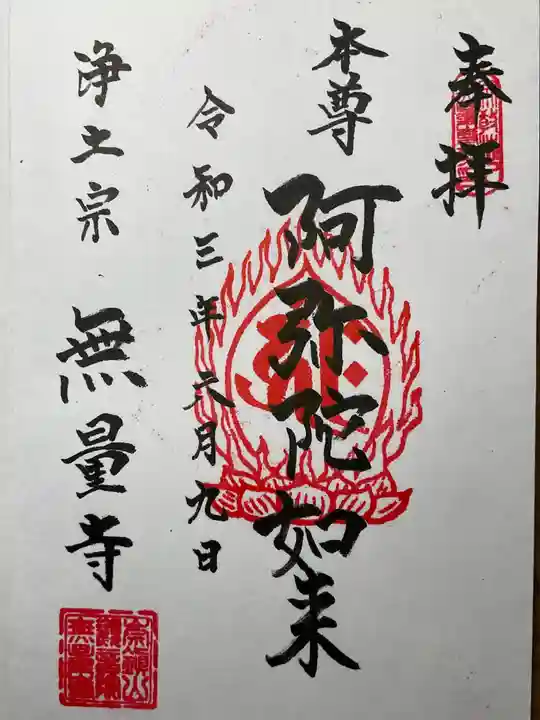 奉拝
本尊
阿弥陀如来
令和三年六月九日
浄土宗 無量寺